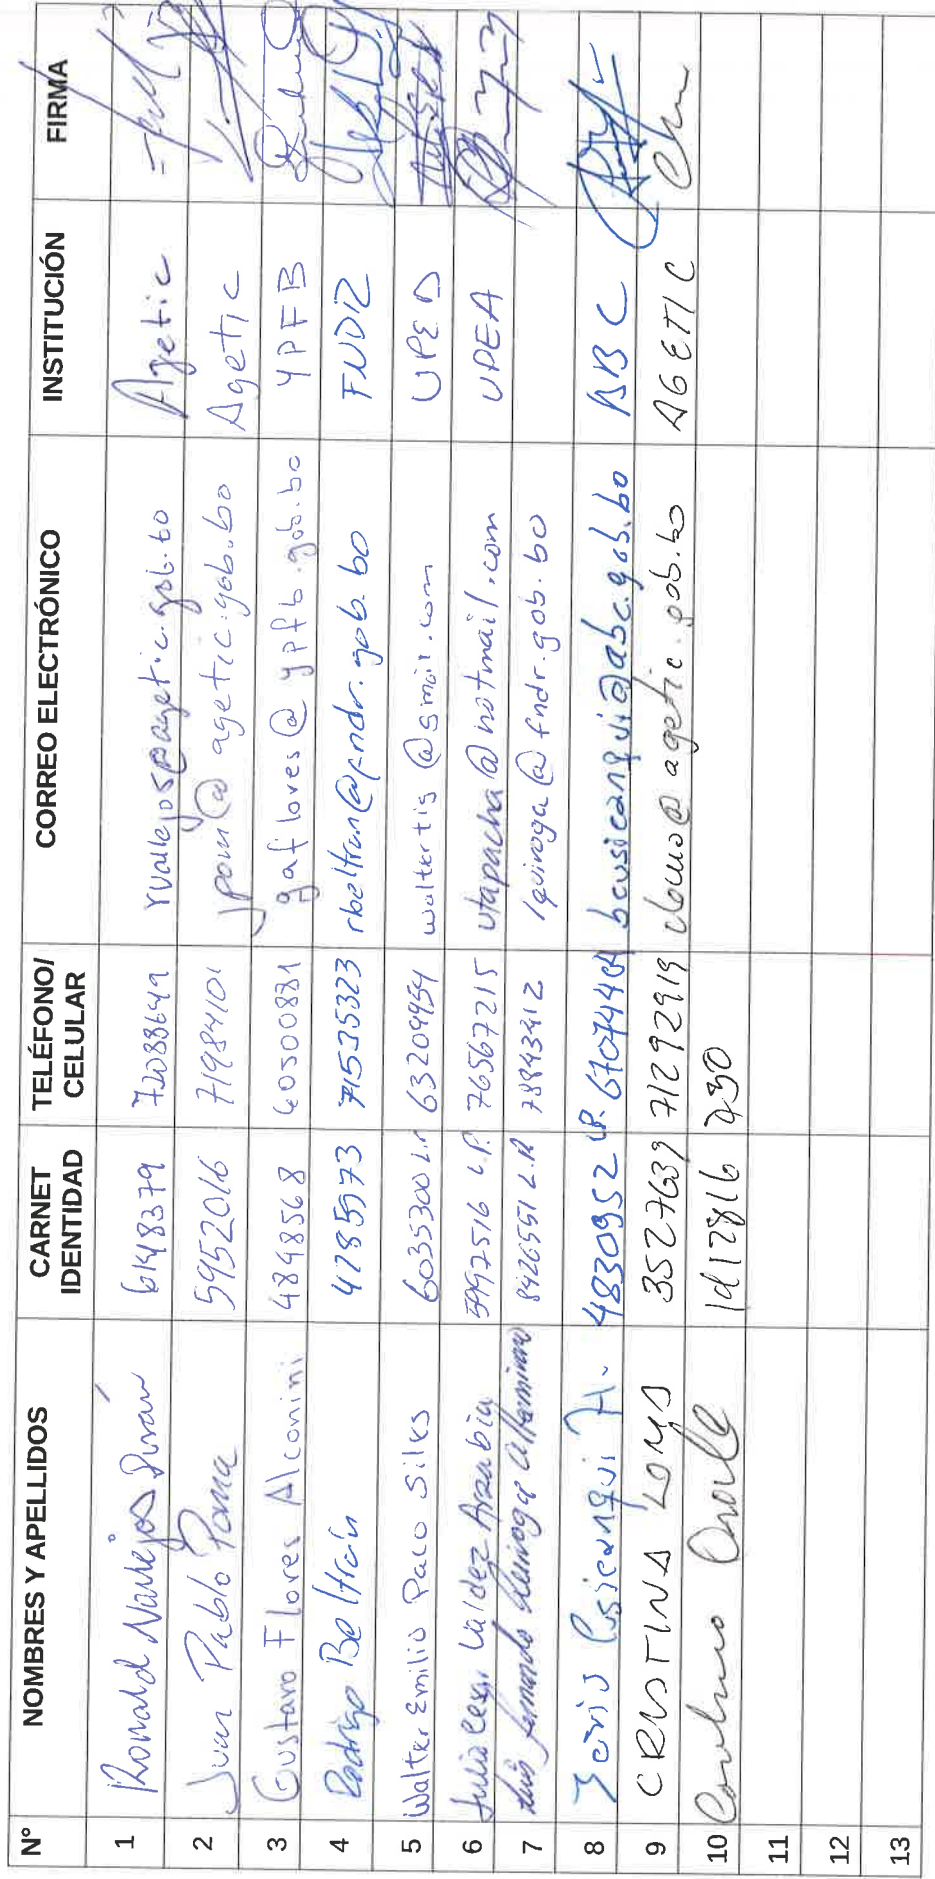 N° NOMBRES Y APELLIDOS CARNET IDENTIDAD TELÉFONO/ CELULAR CORREO ELECTRÓNICO INSTITUCIÓN FIRMA
1 Ronald Durán 6148379 72088649 rvallejos@agetic.gob.bo Agetic
2 Juan Pablo Poma 5952016 71984101 jpoma@agetic.gob.bo Agetic
3 Gustavo Flores Alconini 4898568 60500881 gaflores@ypfb.gob.bo YPFB
4 Rodrigo Beltrán 4785973 71535323 rbeltran@fndr.gob.bo
5 Walter Emilio Paco Siles 6035300 L.P 63209954 waltertis@gmail.com
6 Julio Cesar Valdez Arzabia 5997516 L.P. 76567215 utapacha@hotmail.com UPEA
7 Luis fernando Quiroga Altamirano 8426551 L.P 78843412 lquiroga@fndr.gob.bo
8 4830952 LP. bcusicanqui@abc.gob.bo ABC
9 CRISTINA LOMA 3527639 71292919 cloma@agetic.gob.bo AGETIC
10
11
12
13